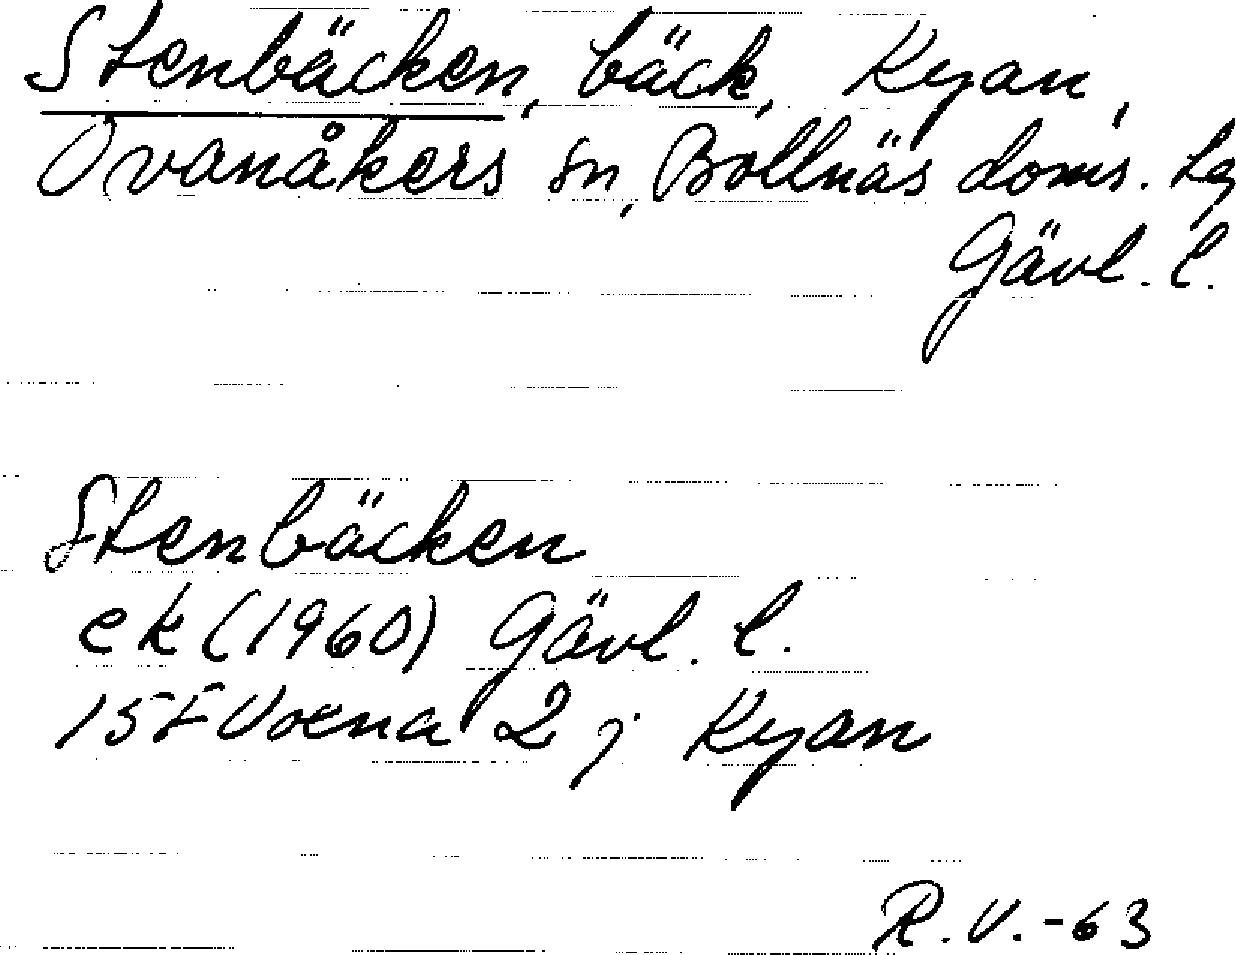 Stenbäcken, bäck, Kyan,
Ovanåkers sn, Bollnäs doms. lg
Gävl. l.
Stenbäcken
ek (1960) Gävl. l.
15F Voxna 2 j Kyan
R.V.-63